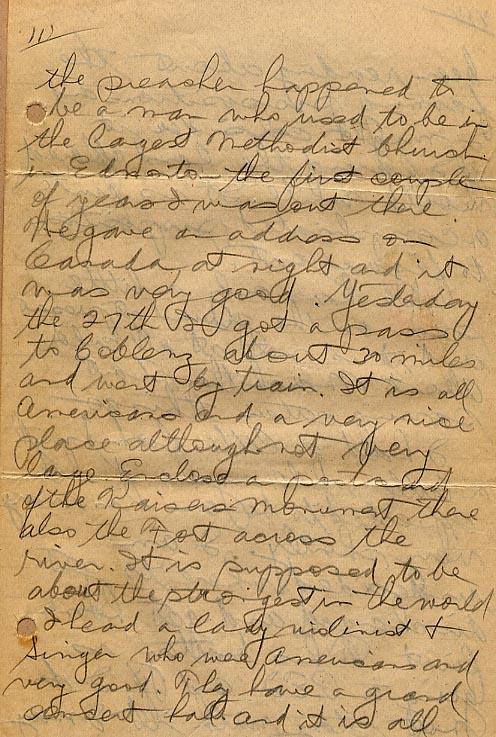 111
the preacher happened to
be a man who used to be in
the Largest Methodist Church
in Edmonto the first couple
of years I was out there.
He gave an address on
Canada, at night and it
was very good. Yesterday
the 27th I got a pass
to Coblenz about 20 miles
and went by train. It is all
Americans and a very nice
place although not very
large. Enclose a postcard
of the Kaisers monument there
also the Fort across the
river. It is supposed to be
about the strongest in the world
I heard a lady violinist &
Singer who were Americans and
very good. They have a grand
concert hall and it is all